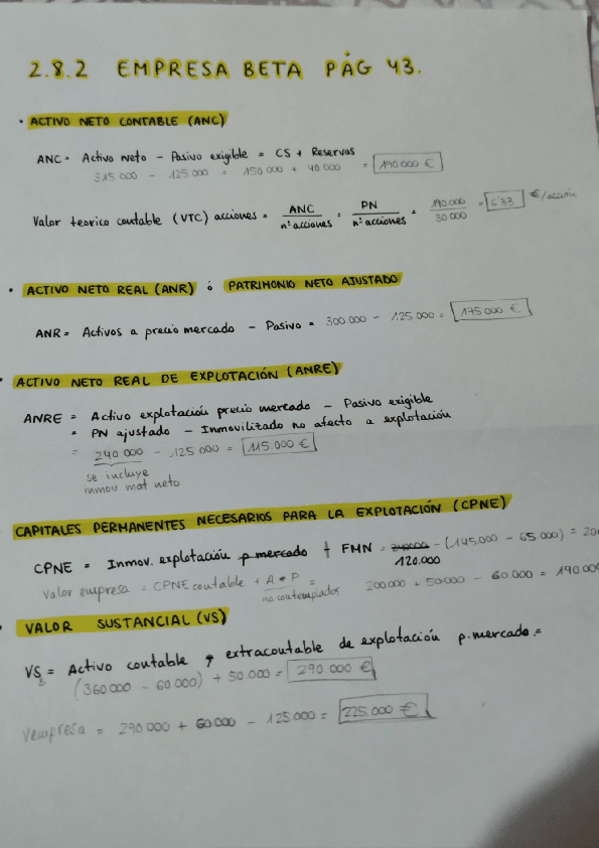 2.8.2 EMPRESA BETA PÁG 43.
• ACTIVO NETO CONTABLE (ANC)
ANC = Activo neto - Pasivo exigible = CS + Reservas
315 000 - 125 000 = 150 000 + 40 000 = 190 000 €
Valor teorico contable (VTC) acciones = ANC / nº acciones = PN / nº acciones = 190 000 / 30 000 = 6'33 €/acción
• ACTIVO NETO REAL (ANR) ó PATRIMONIO NETO AJUSTADO
ANR = Activos a precio mercado - Pasivo = 300 000 - 125 000 = 175 000 €
• ACTIVO NETO REAL DE EXPLOTACIÓN (ANRE)
ANRE = Activo explotación precio mercado - Pasivo exigible
= PN ajustado - Inmovilizado no afecto a explotación
= 240 000 - 125 000 = 115 000 €
se incluye
inmov mat neto
• CAPITALES PERMANENTES NECESARIOS PARA LA EXPLOTACIÓN (CPNE)
CPNE = Inmov. explotación p mercado + FMN = - (145.000 - 65 000) = 20
120.000
Valor empresa = CPNE contable + A P = 200 000 + 50 000 - 60 000 = 190 000
no contemplados
• VALOR SUSTANCIAL (VS)
VS = Activo contable + extracontable de explotación p. mercado =
(360 000 - 60 000) + 50 000 = 290 000 €
Vempresa = 290 000 + 60 000 - 125 000 = 225.000 €